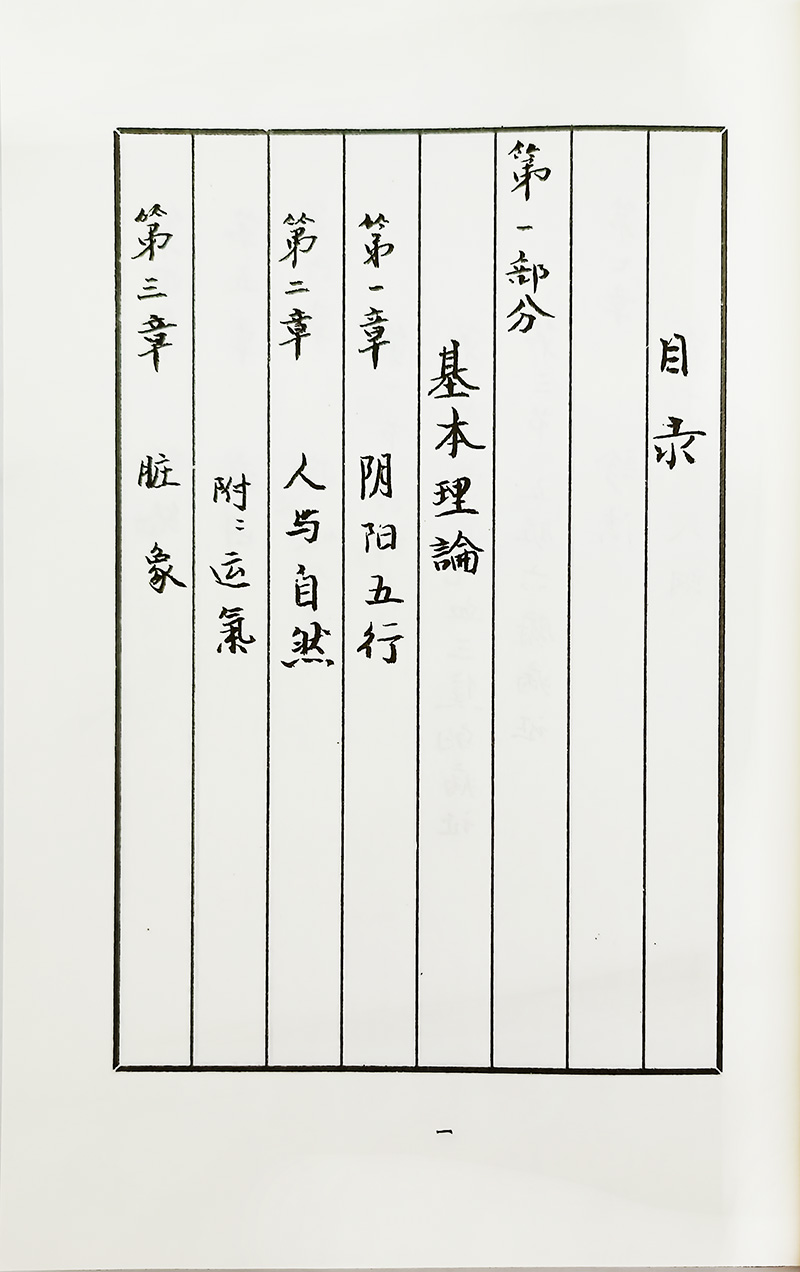 目录
第一部分
基本理論
第一章 阴阳五行
第二章 人与自然
附：运氣
第三章 脏象
一